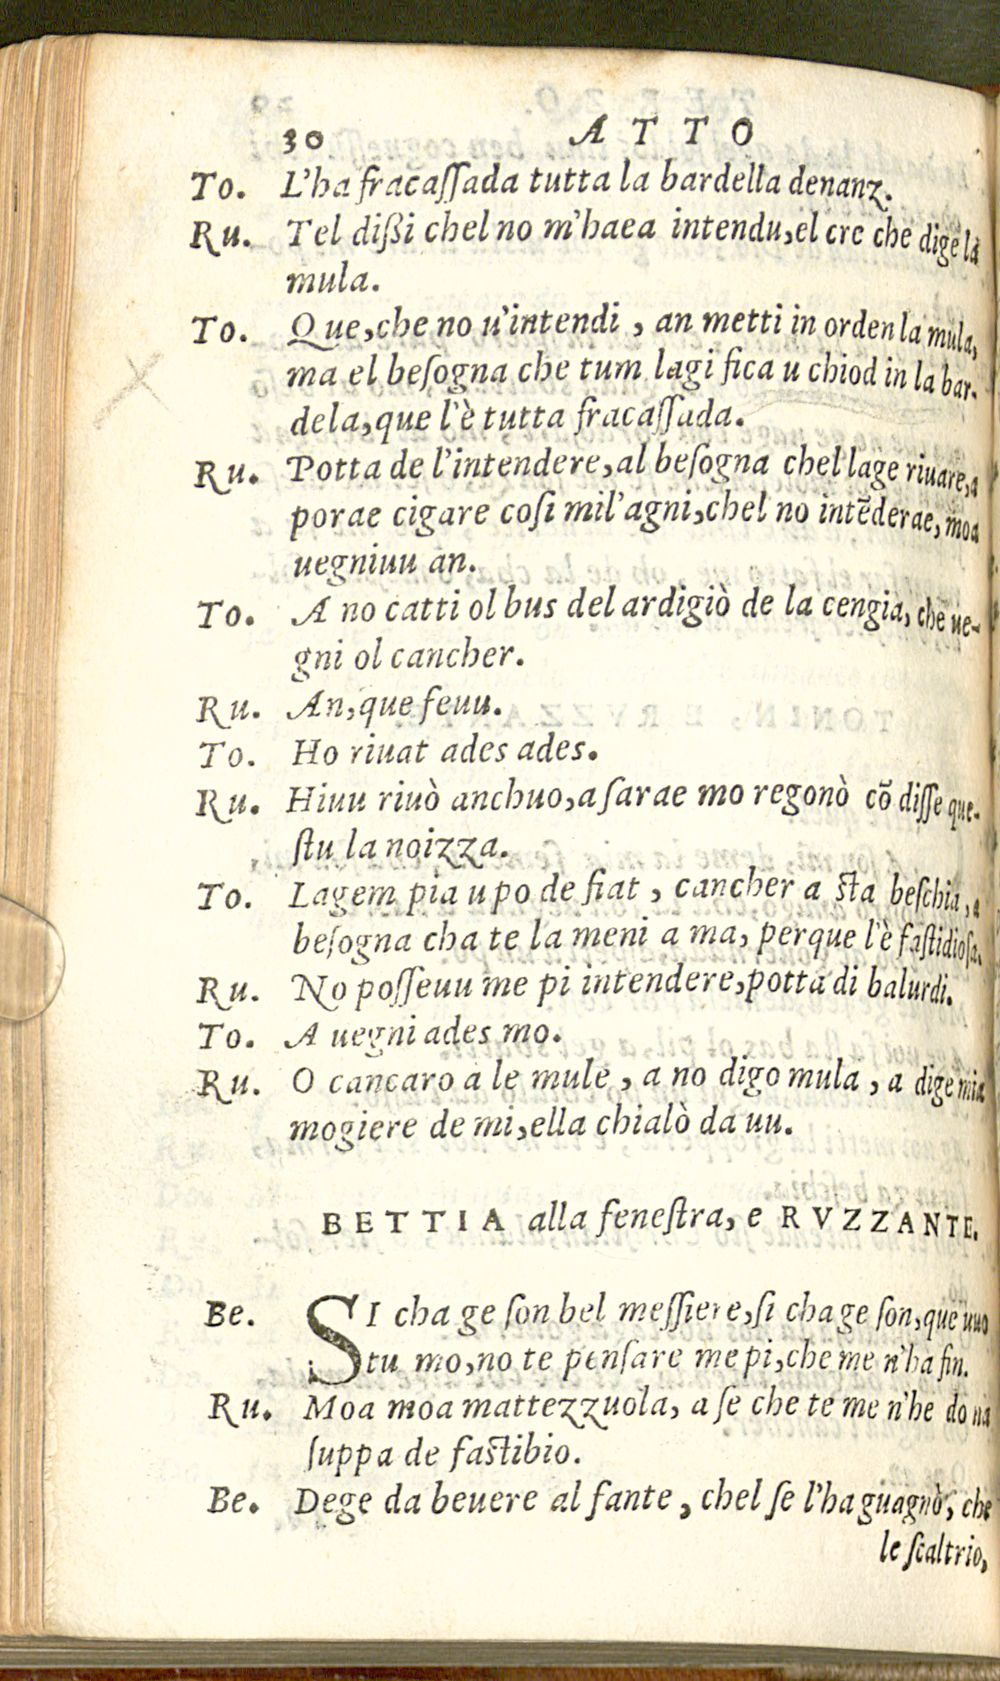 30 ATTO
To. L'ha fracaſſada tutta la bardella denanz.
Ru. Tel dißi chel no m'haea intendu, el cre che dige la
mula.
To. Que, che no u'intendi, an metti in orden la mula,
ma el beſogna che tum lagi fica u chiod in la bar-
dela, que l'è tutta fracaſſada.
Ru. Potta de l'intendere, al beſogna chel lage riuare, a
porae cigare coſi mil'agni, chel no intẽderae, moa
uegniuu an.
To. A no catti ol bus del ardigiò de la cengia, che ue-
gni ol cancher.
Ru. An, que feuu.
To. Ho riuat ades ades.
Ru. Hiuu riuò anchuo, a ſarae mo regonò cõ diſſe que-
ſtu la noizza.
To. Lagem pia u po de fiat, cancher a ſta beſchia, a
beſogna cha te la meni a ma, perque l'è faſtidioſa.
Ru. No poſſeuu me pi intendere, potta di balurdi.
To. A uegni ades mo.
Ru. O cancaro a le mule, a no digo mula, a dige mia
mogiere de mi, ella chialò da uu.
BETTIA alla feneſtra, e RVZZANTE.
Be. SI cha ge ſon bel meſſiere, ſi cha ge ſon, que uuo
tu mo, no te penſare me pi, che me n'ha fin.
Ru. Moa moa mattezzuola, a ſe che te me n'he do na
ſuppa de faſtibio.
Be. Dege da beuere al fante, chel ſe l'ha guagnò, che
le ſcaltrio,